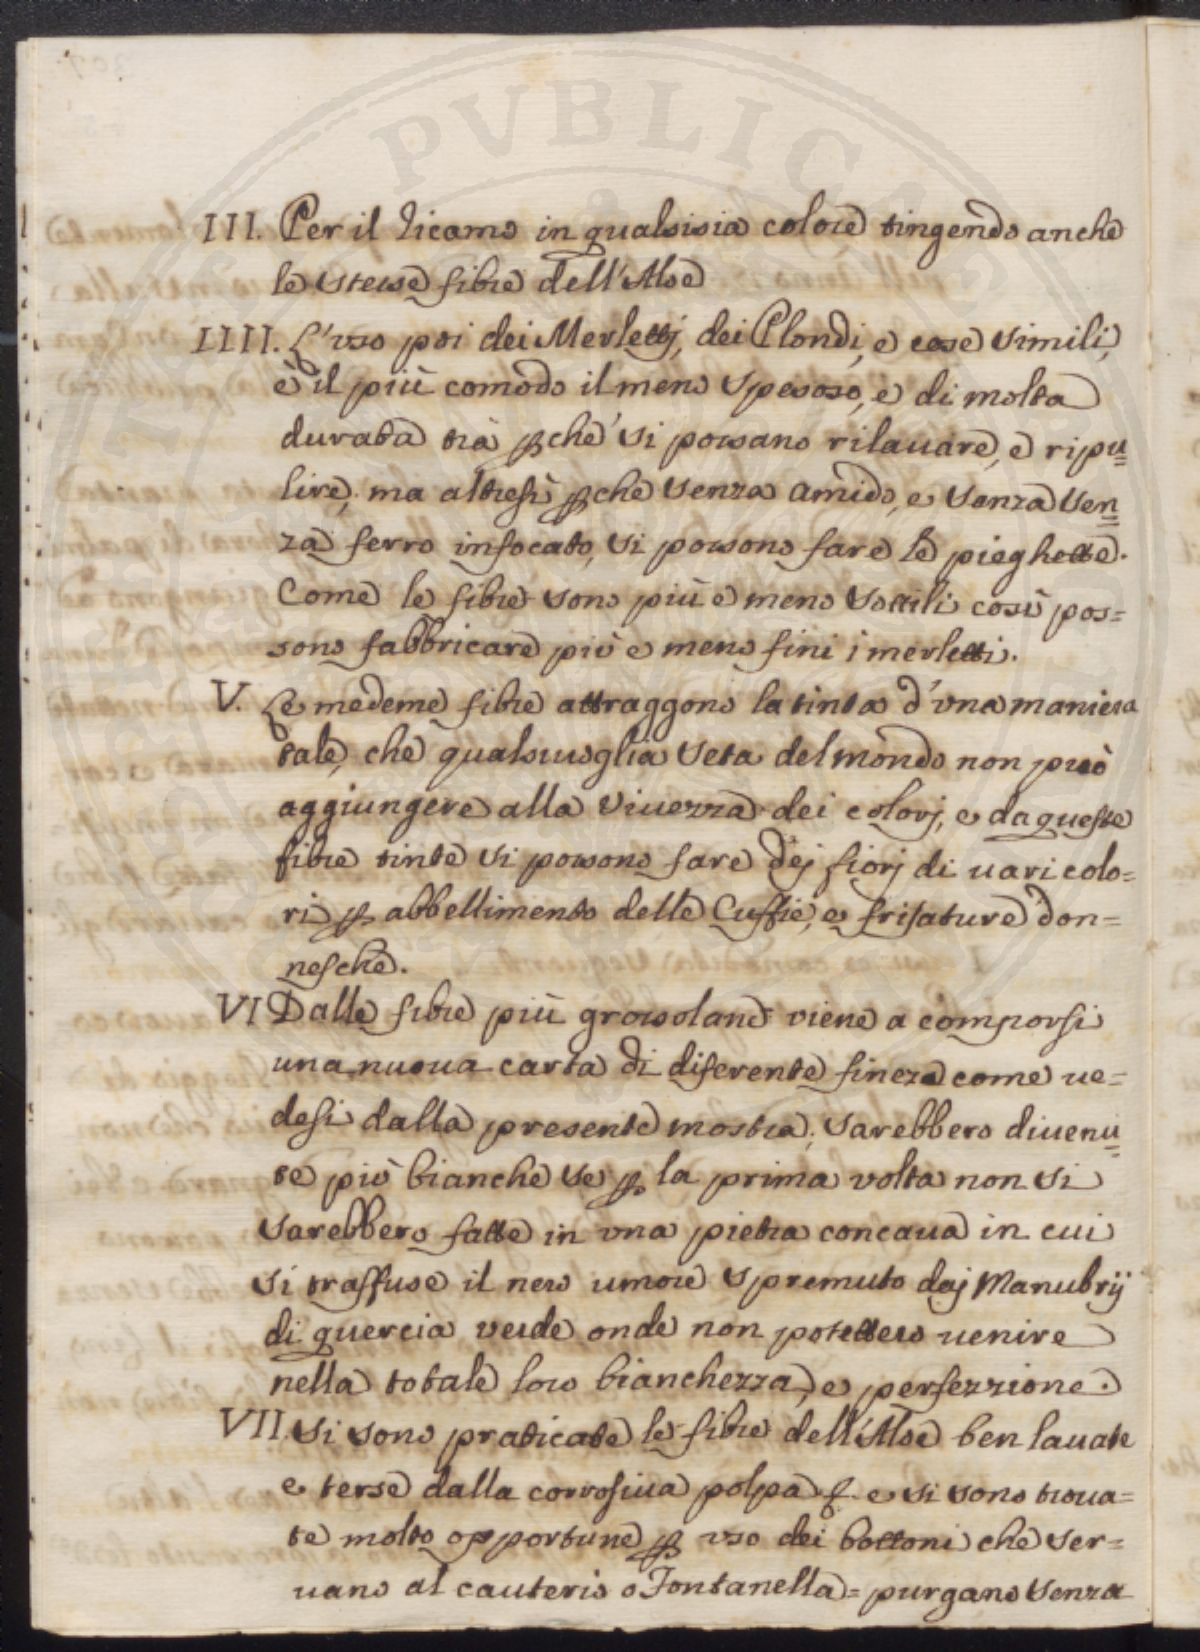 III. Per il ricamo in qualsisia colore tingendo anche
le stesse fibre dell'Aloe
IIII. L'uso poi dei Merletti, dei Blondi, e cose simili,
è il più comodo il meno spesoso, e di molta
durata trà ꝑche si possano rilavare, e ripu=
lire, ma altresì ꝑche senza amido, e senza sen=
za ferro infocato, si possono fare le pieghette.
Come le fibre sono più e meno sottili così pos=
sono fabbricare più e meno fini i merletti.
V. Le medeme fibre attraggono la tinta d'una maniera
tale, che qualsiuoglia seta del mondo non può
aggiungere alla viuezza dei colorj, e da queste
fibre tinte si possono fare dej fiorj di uari colo=
ri ꝑ abbellimento delle Cuffie, e frisature don=
nesche.
VI Dalle fibre più grossolane viene a comporsi
una nuoua carta di diferente fineza come ue=
desi dalla presente mostra; sarebbero diuenu=
te più bianche se ꝑ la prima volta non si
sarebbero fatte in una pietra concaua in cui
si traffuse il nero umore spremuto daj Manubrij
di quercia verde onde non potettero uenire
nella totale loro bianchezza, e perfezzione.
VII. Si sono praticate le fibre dell'Aloe ben lauate
e terse dalla corrosiua polpa e si sono troua=
te molto opportune ꝑ uso dei bottoni che ser=
uano al cauterio o Fontanella = purgano senza